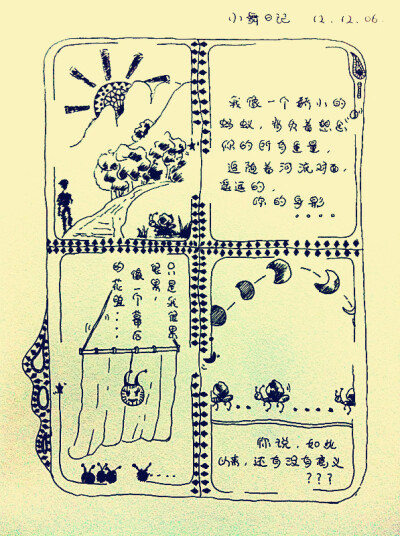 小舞日记 12.12.06.
我像一个小的
蚂蚁，背负着想念
你的所有重量，
追随着河流对面，
遥远的，
你的身影
....
只是我很累
很累，
像一个幕后
的花脸....
你说，如此
以来，还有没有意义
???